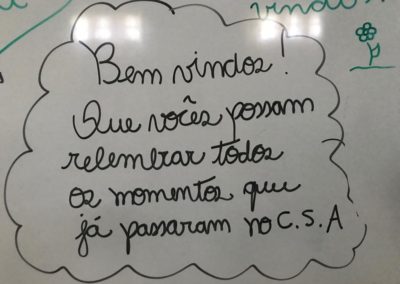 vindos!
Bem vindos!
Que vocês possam
relembrar todos
os momentos que
já passaram no C.S.A